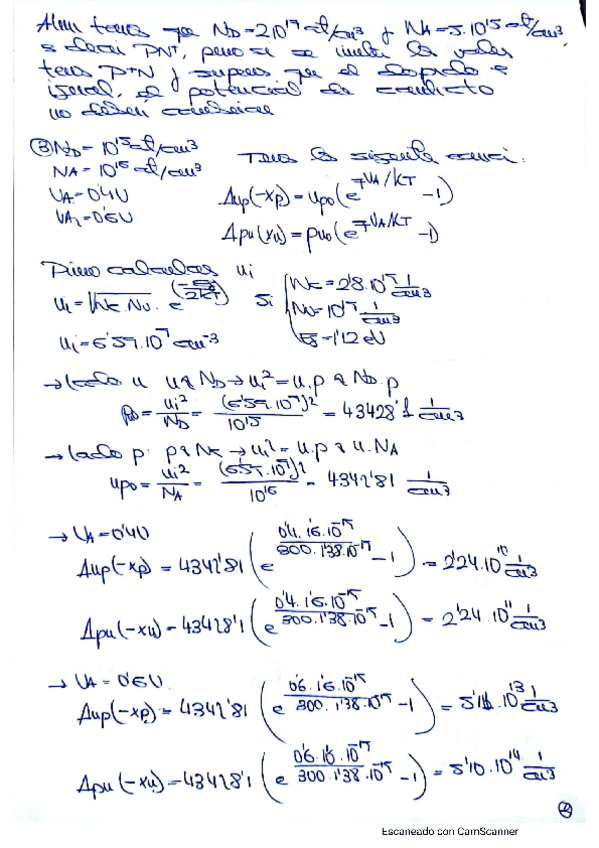 Ahora tenemos que ND=2·10¹⁷ at/cm³ y NA=5·10¹⁵ at/cm³,
es decir PN⁺, pero si se invierten los valores
tenemos P⁺N y supones que el dopado es
igual, el potencial de contacto
no deberá cambiar
③ ND = 10¹⁵ at/cm³
NA = 10¹⁶ at/cm³
VA = 0'4V
VA₂ = 0'6V
Tenemos la siguiente
Δnp(-xp) = npo(e^{qVA/KT} -1)
Δpn(xn) = pno(e^{qVA/KT} -1)
Primero calculamos ni
ni = √Nc.Nv. e^(-Eg/2KT)
Si
Nc = 2'8.10¹⁹ 1/cm³
Nv = 10¹⁹ 1/cm³
Eg = 1'12 eV
ni = 6'59.10⁹ cm⁻³
→ lado n n≈ND → ni² = n.p ≈ ND.p
= ni²/ND = (6'59.10⁹)²/10¹⁵ = 43428'1 1/cm³
→ lado p: p≈NA → ni² = n.p ≈ n.NA
npo = ni²/NA = (6'59.10⁹)²/10¹⁶ = 4342'81 1/cm³
→ VA = 0'4V
Δnp(-xp) = 4342'81 (e^{0'4.1'6.10⁻¹⁹/300.1'38.10⁻²³} -1) = 2'24.10¹⁰ 1/cm³
Δpn(-xn) = 43428'1 (e^{0'4.1'6.10⁻¹⁹/300.1'38.10⁻²³} -1) = 2'24.10¹¹ 1/cm³
→ VA = 0'6V.
Δnp(-xp) = 4342'81 (e^{0'6.1'6.10⁻¹⁹/300.1'38.10⁻²³} -1) = 10¹³ 1/cm³
Δpn(-xn) = 43428'1 (e^{0'6.1'6.10⁻¹⁹/300.1'38.10⁻²³} -1) = 5'10.10¹⁴ 1/cm³
Escaneado con CamScanner